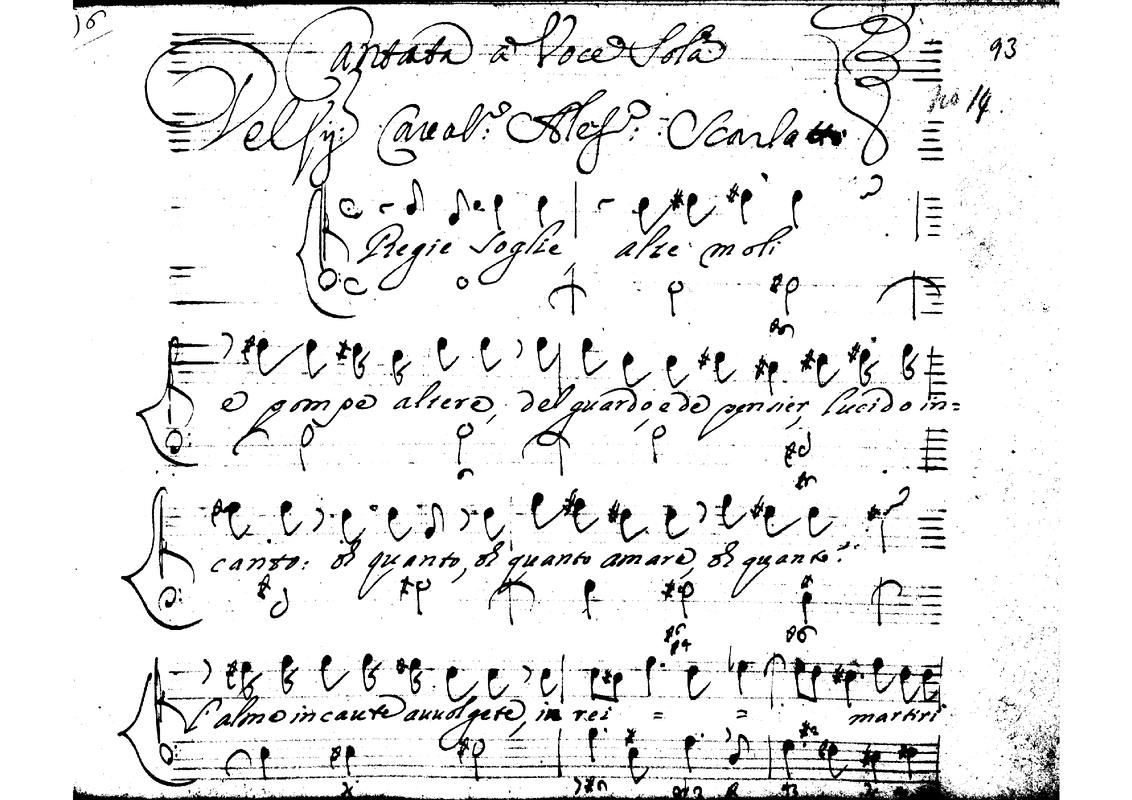 16
93
Cantata à Voce Sola
no 14.
Del Sig: Caval.r Aless.o: Scarlatti
Regie soglie alte moli
e pompe altere, del guardo, e de pensier, lucido in=
canto: oh quanto, oh quanto amare, oh quanto:
l'alme incaute auuolgete, in rei = = martiri